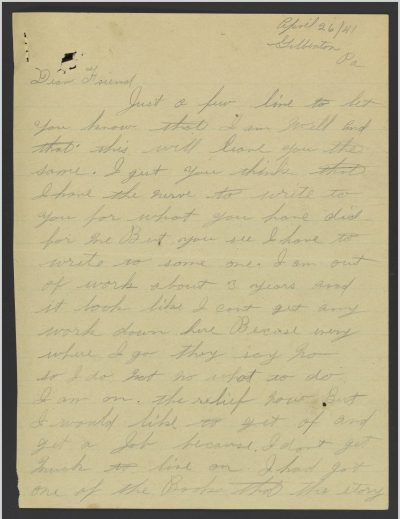 April 26/41
Gilberton
Pa
Dear Friend
Just a few line to let
you know that I am well and
that this will leave you the
same. I gest you think that
I have the nerve to write to
you for what you have did
for me But you see I have to
write to some one. I am out
of work about 3 years and
it look like I cant get any
work down here Becase every
where I go they say no
so I do not no what to do
I am on the relief now But
I would like to get of and
get a Job because I dont get
much to live on I had got
one of the Book that the story